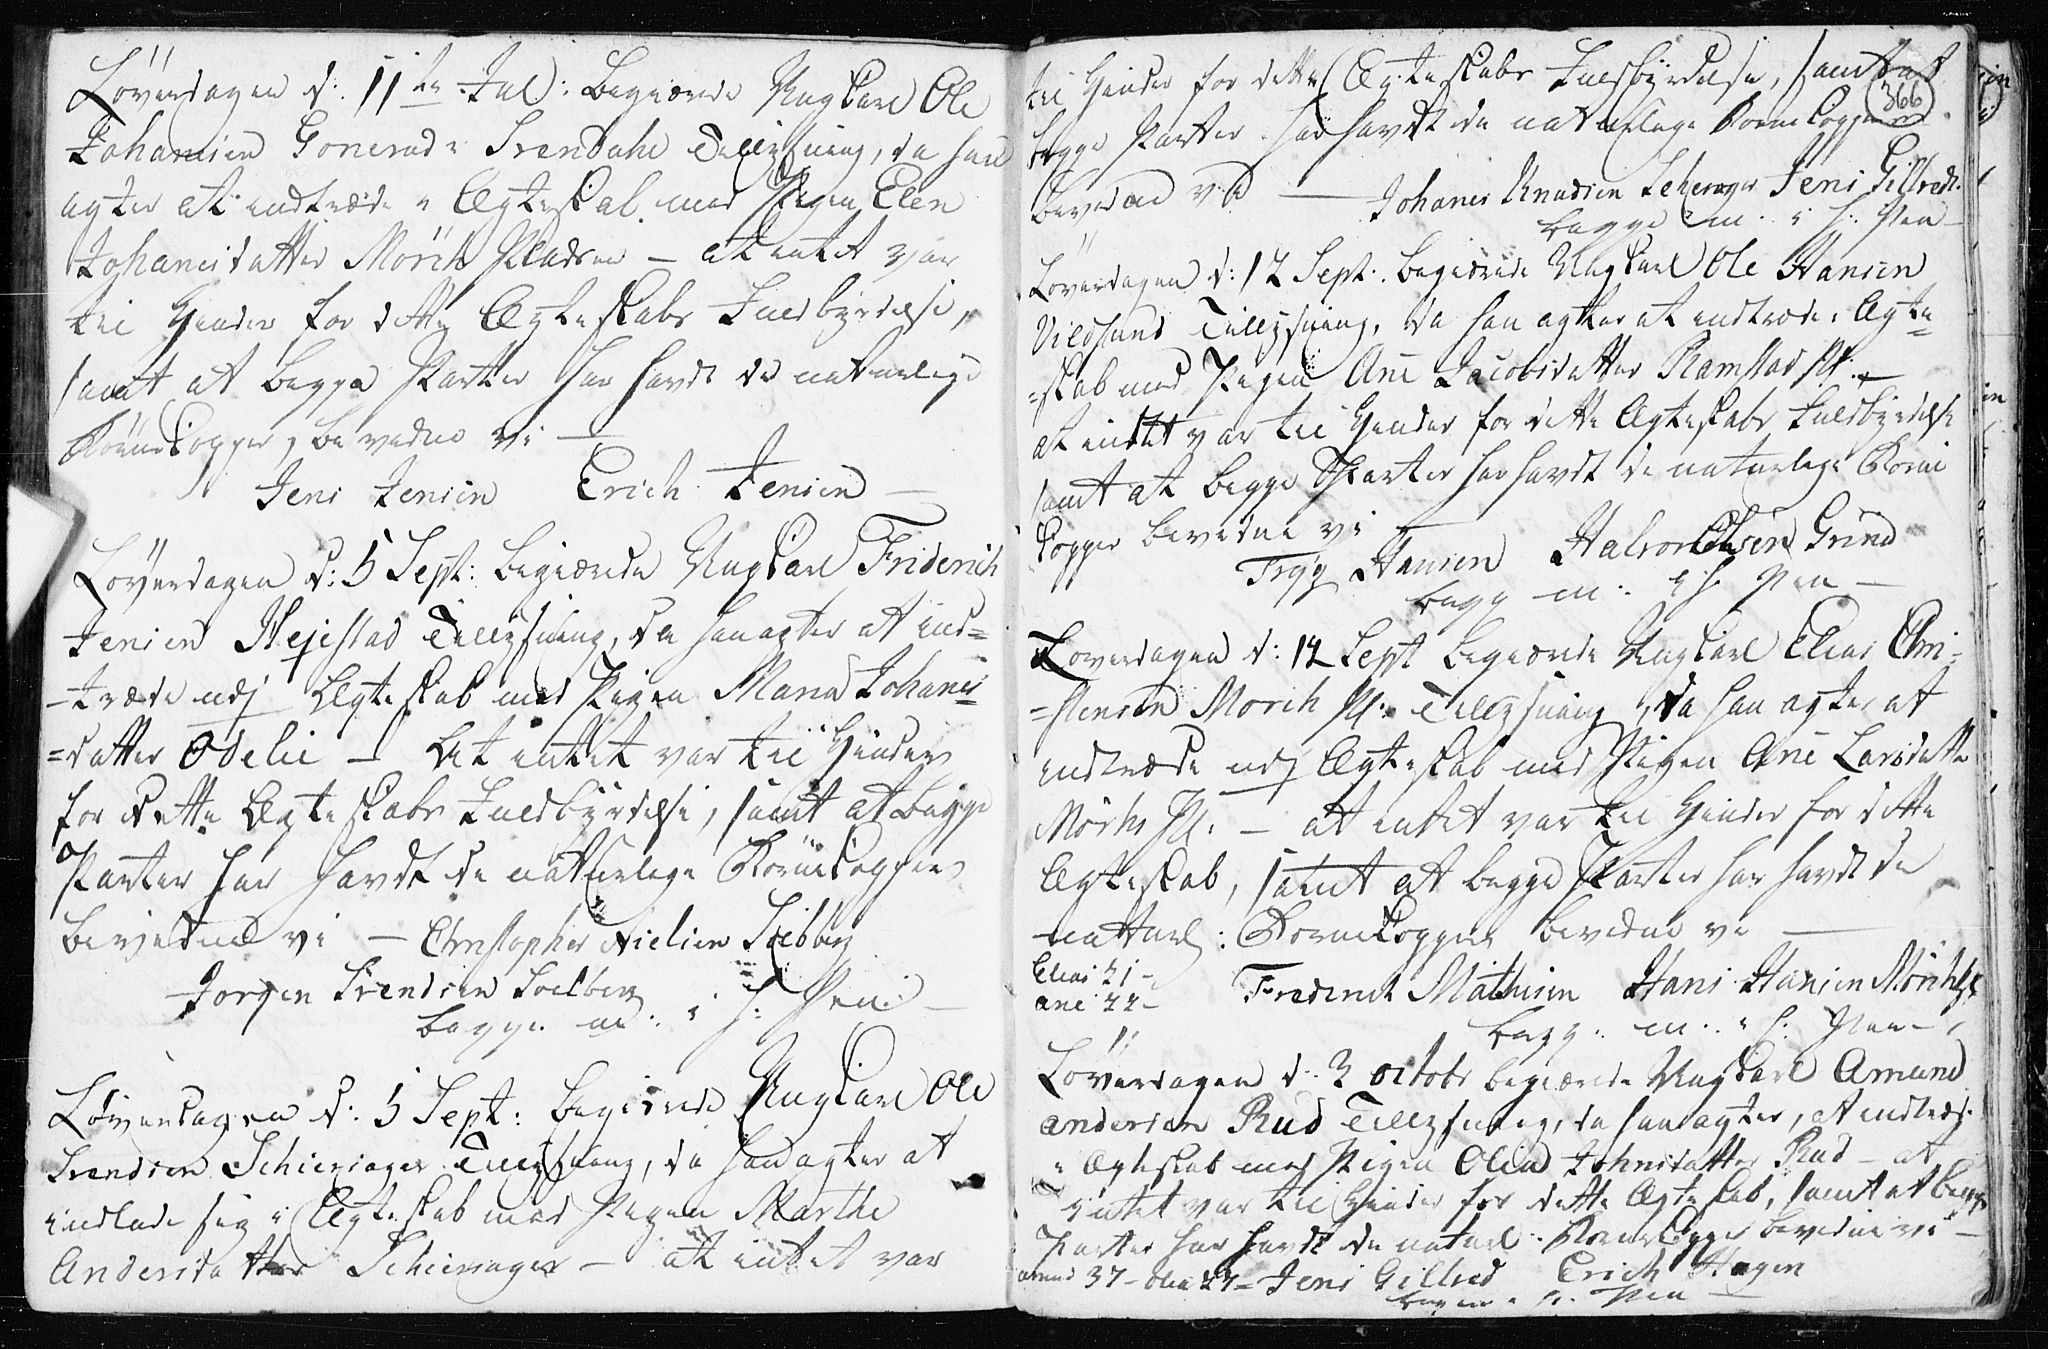 Löverdagen d: 11te Jul: begiærede Ungkarl Ole
Johannesen Gonerud Trendahl Tillysning, da han
agter at indtræde i Ægteskab med Pigen Elen
Johanisdatter Mörch Pladsen — at intet var
til Hinder for dette Ægteskabs Fuldbyrdelse,
samt at begge Parter har havdt de naturlige
Börnekopper, bevidne vi —
Jens Jensen Erich Jensen —
Löverdagen d: 5 Sept: begiærede Ungkarl Friderich
Jensen Hejestad Tillysning, da han agter at ind=
=træde udj Ægteskab med Pigen Maria Johanis=
=datter Odelie — at intet var til Hinder
for dette Ægteskabs Fuldbyrdelse, samt at begge
Parter har havdt de naturlige Börnekopper
bevidne vi — Christopher Nielsen Solberg
Jorgen Svendsen Solberg
begge m: i H: Pen —
Löverdagen d: 5 Sept: begierede Ungkarl Ole
Svendsen Schieriager Tillysning, da han agter at
indlade sig i Ægteskab med Pigen Marthe
Andersdatter Schieriager — at intet var
til Hinder for dette Ægteskabs Fuldbyrdelse, samt at
366
begge Parter har havdt de naturlige Börnekopper
bevidne vi — Johanes Knudsen Scheriager Jens Gillred
begge m: i H: Pen —
Löverdagen d: 12 Sept. begiærede Ungkarl Ole Hansen
Vildsund Tillysning, da han agter at indtræde i Ægte
=skab med Pigen Ane Jacobsdatter Ramstad Pl: —
at intet var til Hinder for dette Ægteskabs Fuldbyrdelse
samt at begge Parter har havdt de naturlige Börne
kopper bevidne vi —
Tryg Hansen Halvor Olsen Grind
begge m: i H: Pen —
Löverdagen d: 12 Sept begiærede Ungkarl Elias Chri=
=stensen Morch Pl: Tillysning, da han agter at
indtræde udj Ægteskab med Pigen Ane Larsdatter
Mörks Pl. — at intet var til Hinder for dette
Ægteskab, samt at begge Parter har havdt de
naturl: Bornekopper bevidne vi —
Elias 31 —
Ane 22 —
Frederich Mathisen Hans Hansen Mörch
begg: m: i H: Pen —
Löverdagen d: 3 octobr begiærede Ungkarl Amund
Andersen Rud Tillysning, da han agter, at indtræde
i Ægteskab med Pigen Olea Johnsdatter Rud — at
intet var til Hinder for dette Ægteskab, samt at begge
Parter har havdt de naturl: Bornekopper bevidne vi —
Amund 37 — Olea 27 — Jens Gillred Erich Hagen
begge m: i H: Pen —